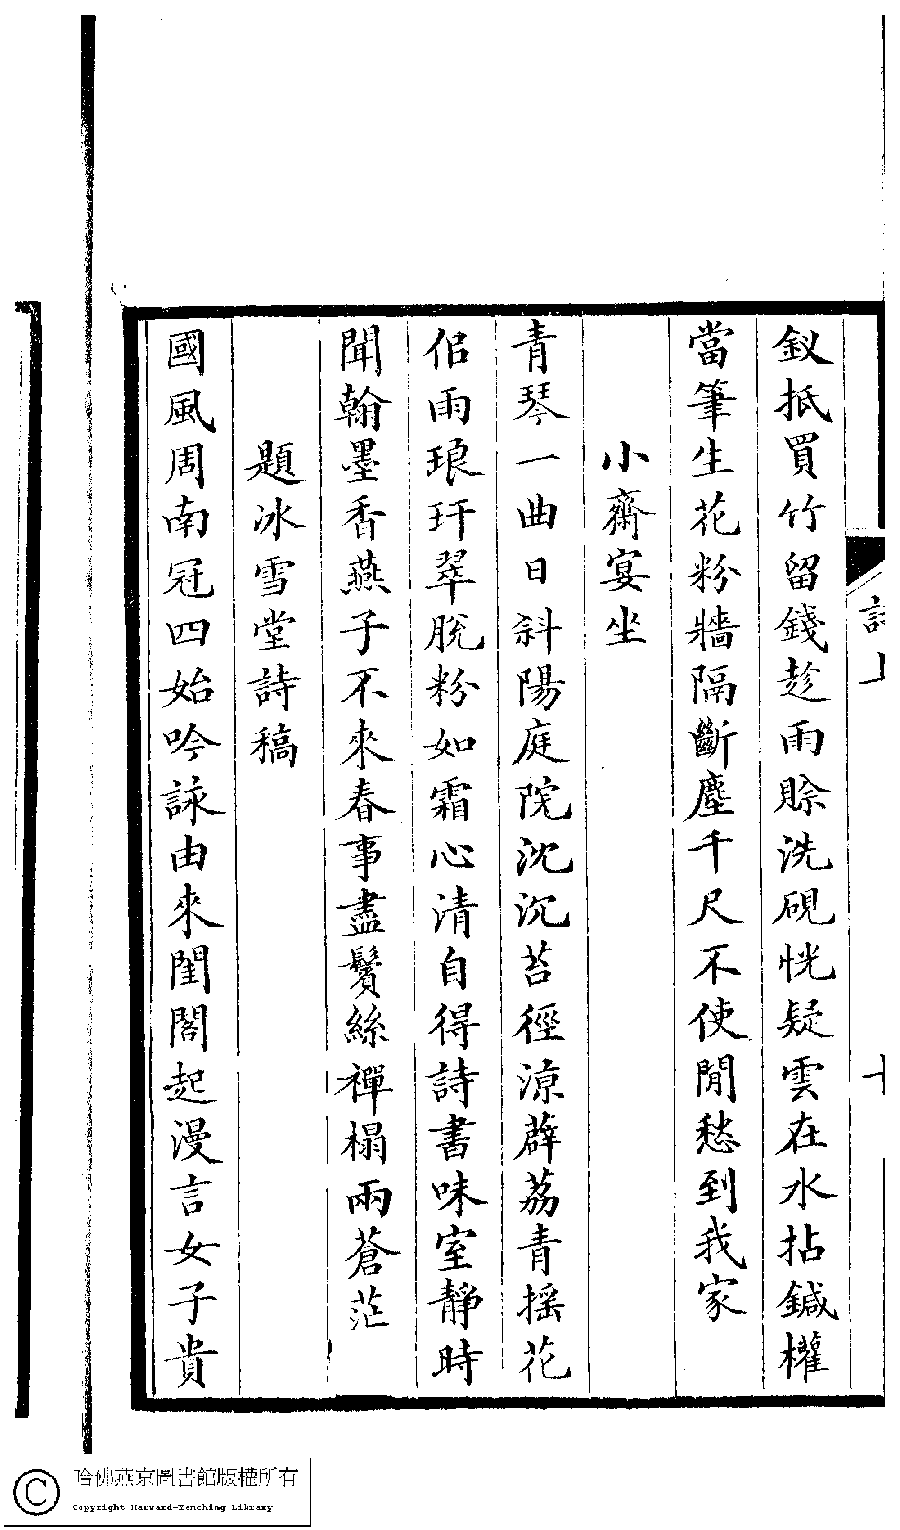 詩上
十
釵抵買竹留錢趁雨賒洗硯恍疑雲在水拈鍼權
當筆生花粉牆隔斷塵千尺不使閒愁到我家
小齋宴坐
青琴一曲日斜陽庭院沈沉苔徑涼薜荔青摇花
侶雨琅玕翠脫粉如霜心清自得詩書味室靜時
聞翰墨香燕子不來春事盡鬢絲禪榻兩蒼茫
題冰雪堂詩稿
國風周南冠四始吟詠由來閨閣起漫言女子貴
哈佛燕京圖書館版權所有
Copyright Harvard-Yenching Library